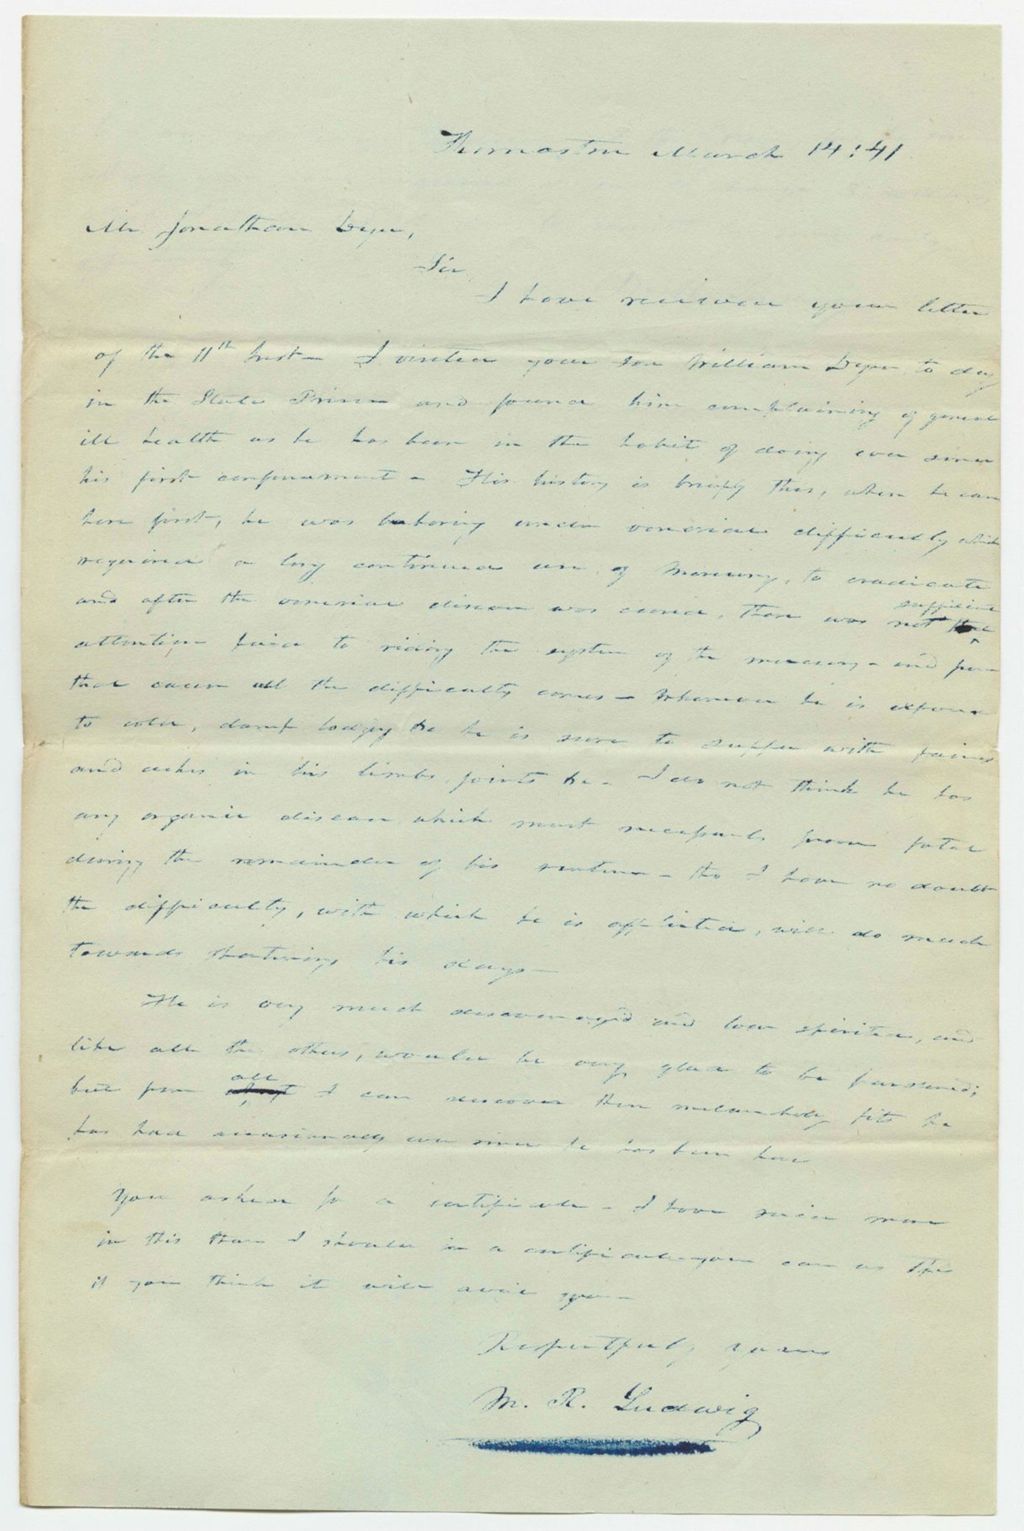 Thomaston March 14: 41
Mr Jonathan Dyer,
Sir
I have received your letter
of the 11th Inst - I visited your son William Dyer to day
in the State Prison and found him complaining of general
ill health as he has been in the habit of doing ever since
his first confinement - His history is briefly this, when he came
here first, he was laboring under venereal difficulty which
required a long continued use of Mercury, to eradicate
and after the venereal disease was cured, there was not sufficient
attention paid to riding the system of the mercury - and from
that cause all the difficulty comes - Whenever he is exposed
to cold, damp lodging &c he is sure to suffer with pains
and aches in his limbs, joints &c - I do not think he has
any organic disease which must necessarily prove fatal
during the remainder of his sentence - tho I have no doubt
the difficulty, with which he is afflicted, will do much
towards shortening his days -
He is very much discouraged and low spirited, and
like all the others, would be very glad to be pardoned;
but from all I can discover these melancholy fits he
has had occasionally ever since he has been here
You asked for a certificate - I have said more
in this than I should in a certificate you can use this
if you think it will avail you -
Respectfully yours
M. R. Ludwig